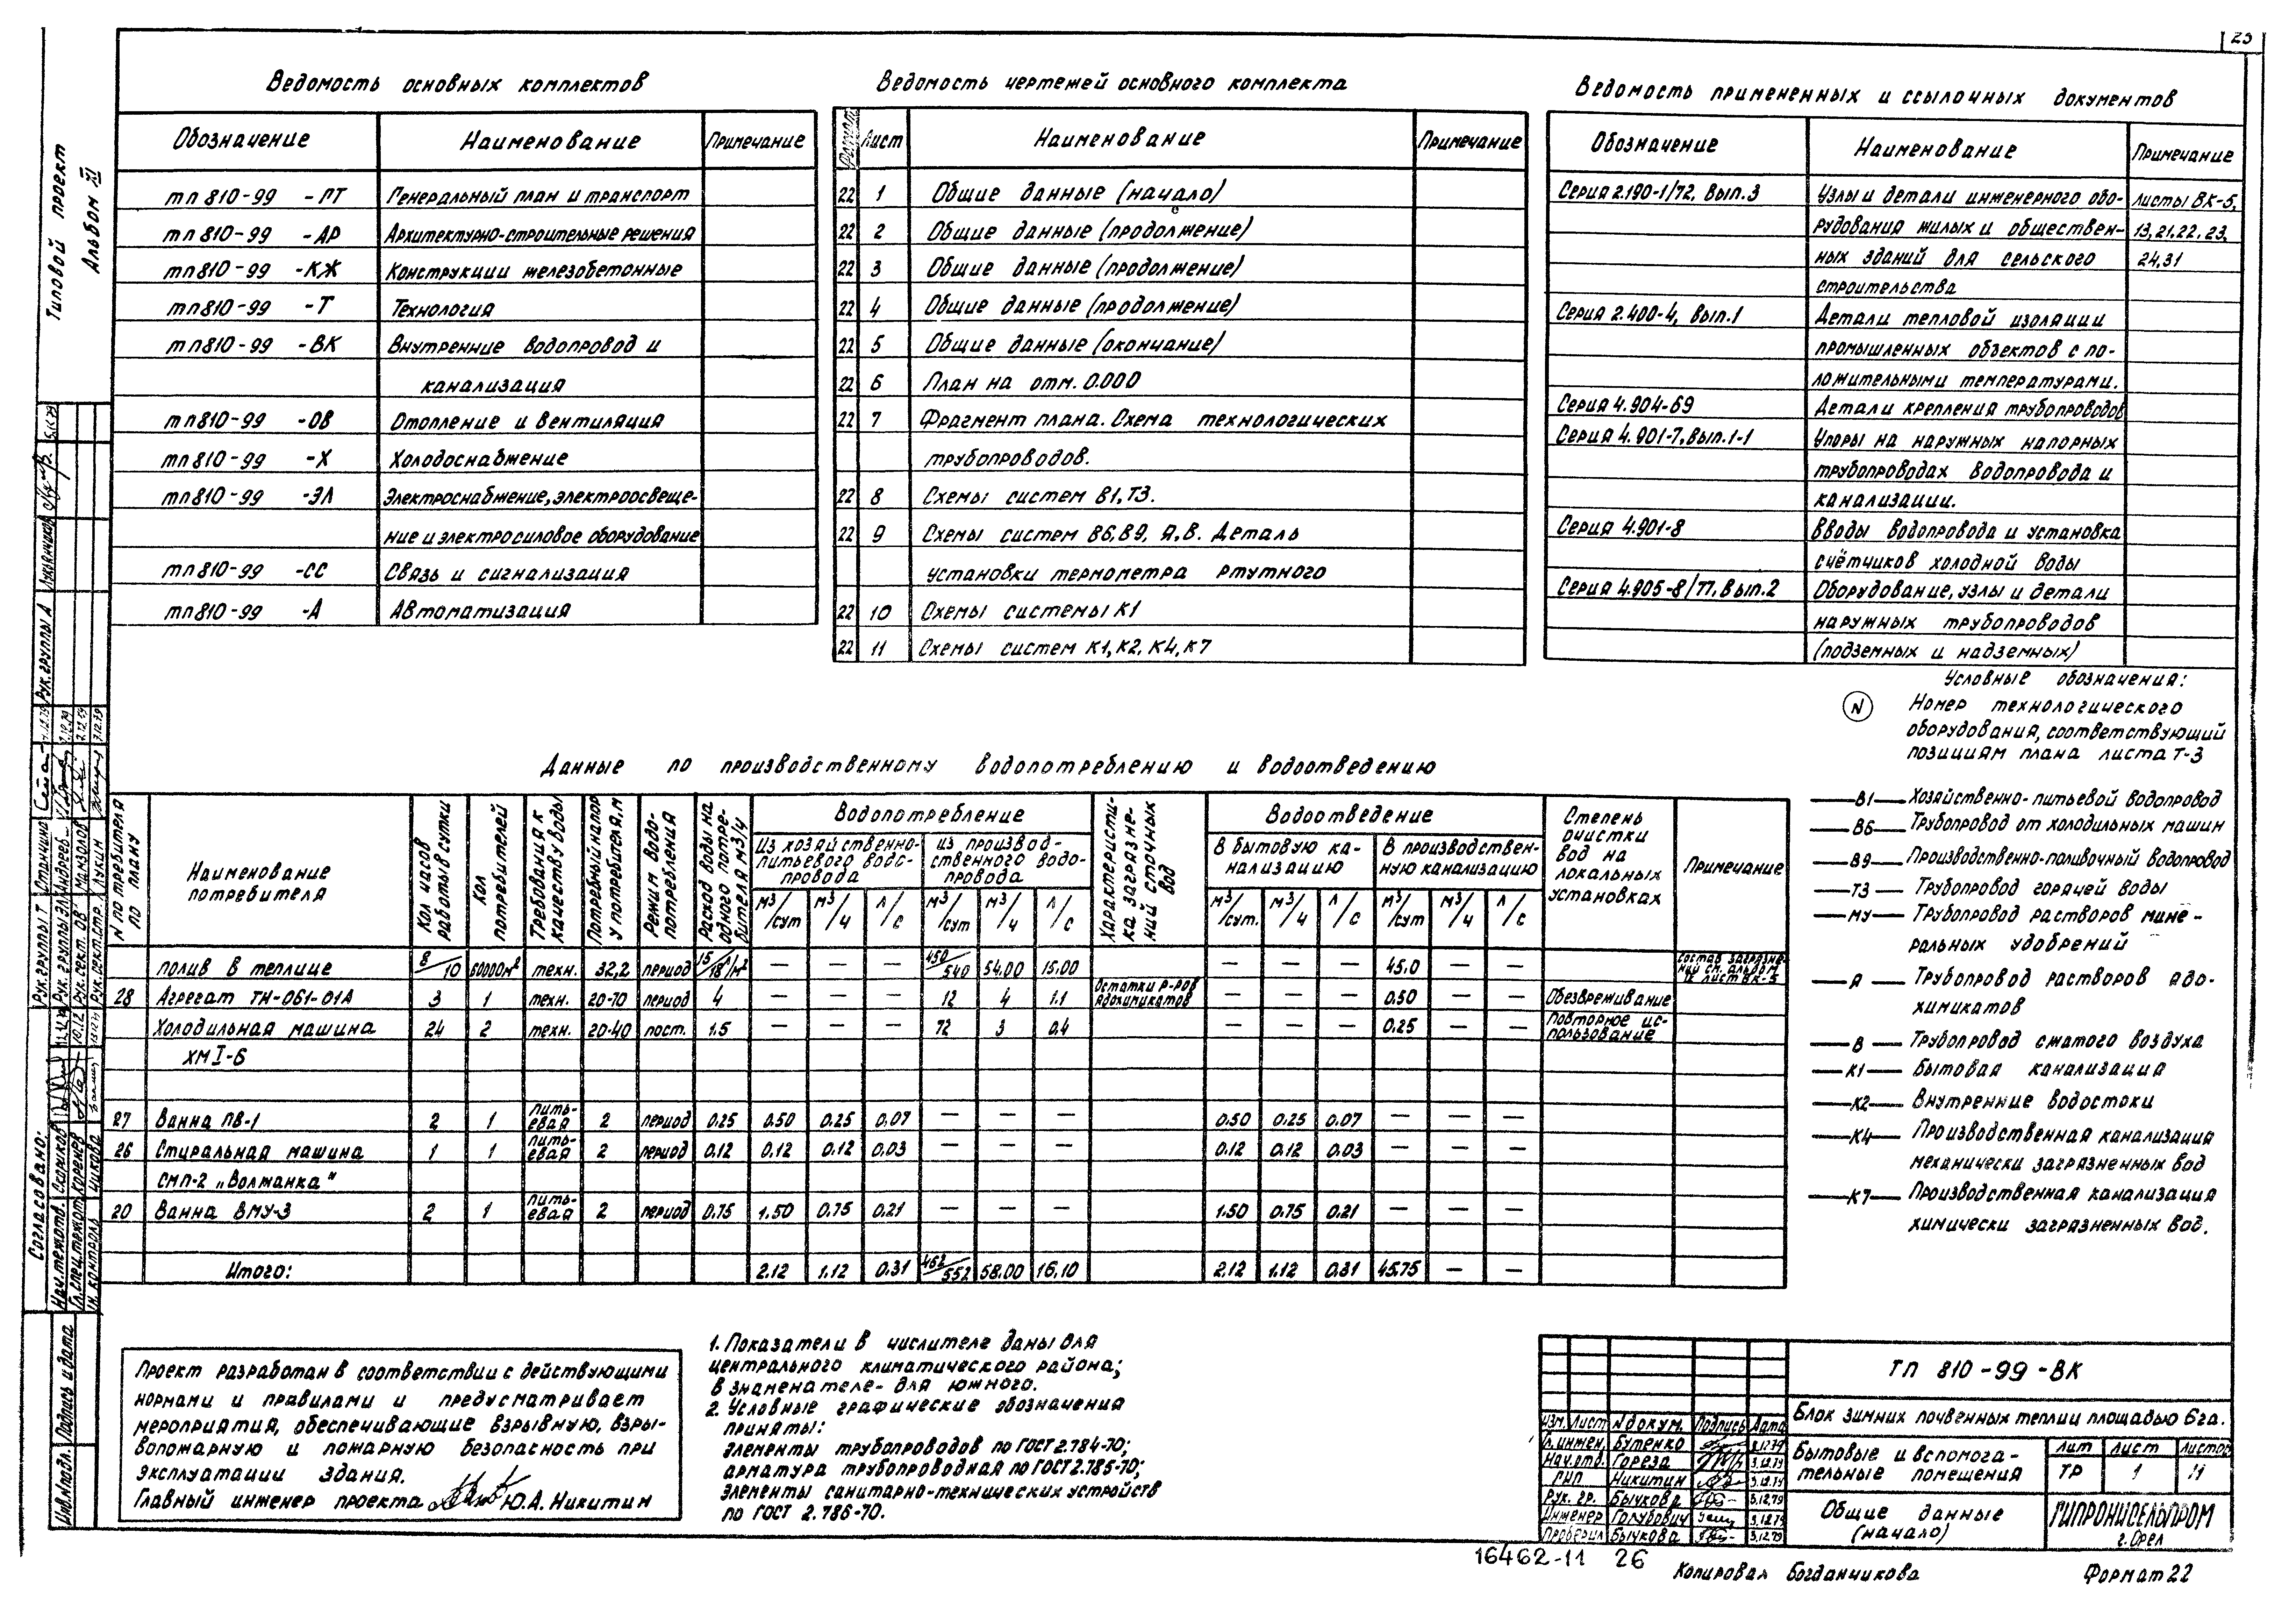 23
Типовой проект
Альбом XI
Ведомость основных комплектов
Обозначение Наименование Примечание
тп810-99 -ГТ Генеральный план и транспорт
тп810-99 -АР Архитектурно-строительные решения
тп810-99 -КЖ Конструкции железобетонные
тп810-99 -Т Технология
тп810-99 -ВК Внутренние водопровод и
канализация
тп810-99 -ОВ Отопление и вентиляция
тп810-99 -Х Холодоснабжение
тп810-99 -ЭЛ Электроснабжение, электроосвеще-
ние и электросиловое оборудование
тп810-99 -СС Связь и сигнализация
тп810-99 -А Автоматизация
Ведомость чертежей основного комплекта
Формат Лист Наименование Примечание
22 1 Общие данные (начало)
22 2 Общие данные (продолжение)
22 3 Общие данные (продолжение)
22 4 Общие данные (продолжение)
22 5 Общие данные (окончание)
22 6 План на отм. 0.000
22 7 Фрагмент плана. Схема технологических
трубопроводов.
22 8 Схемы систем В1, Т3.
22 9 Схемы систем В6, В9, Я, В. Деталь
установки термометра ртутного
22 10 Схемы системы К1
22 11 Схемы систем К1, К2, К4, К7
Ведомость примененных и ссылочных документов
Обозначение Наименование Примечание
Серия 2.190-1/72, вып.3 Узлы и детали инженерного обо- Листы ВК-5,
рудования жилых и обществен- 13, 21, 22, 23,
ных зданий для сельского 24, 31
строительства
Серия 2.400-4, вып.1 Детали тепловой изоляции
промышленных объектов с по-
ложительными температурами.
Серия 4.904-69 Детали крепления трубопроводов
Серия 4.901-7, вып.1-1 Упоры на наружных напорных
трубопроводах водопровода и
канализации.
Серия 4.901-8 Вводы водопровода и установка
счётчиков холодной воды
Серия 4.905-8/77, вып.2 Оборудование, узлы и детали
наружных трубопроводов
(подземных и надземных)
Условные обозначения:
N Номер технологического
оборудования, соответствующий
позициям плана листа Т-3
В1 Хозяйственно-питьевой водопровод
В6 Трубопровод от холодильных машин
В9 Производственно-поливочный водопровод
Т3 Трубопровод горячей воды
МУ Трубопровод растворов мине-
ральных удобрений
Я Трубопровод растворов ядо-
химикатов
В Трубопровод сжатого воздуха
К1 Бытовая канализация
К2 Внутренние водостоки
К4 Производственная канализация
механически загрязненных вод
К7 Производственная канализация
химически загрязненных вод.
Данные по производственному водопотреблению и водоотведению
N потребителя по плану
Наименование потребителя
Кол часов работы в сутки
Кол потребителей
Требования к качеству воды
Потребный напор у потребителя, м
Режим водопотребления
Расход воды на одного потребителя м3/ч
Водопотребление
Из хозяйственно-питьевого водопровода
из производственного водопровода
Характеристика загрязнений сточных вод
Водоотведение
В бытовую канализацию
В производственную канализацию
Степень очистки вод на локальных установках
Примечание
м³/сут м³/ч л/с м³/сут м³/ч л/с м³/сут. м³/ч л/с м³/сут м³/ч л/с
полив в теплице 8/10 60000м² техн. 32,2 период 15/18 л/м² — — — 450/540 54.00 15.00 — — — 45.0 — — состав загрязнений см. альбом IX лист ВК-3
28 Агрегат ТН-061-01А 3 1 техн. 20-70 период 4 — — — 12 4 1.1 Остатки р-ров ядохимикатов — — — 0.50 — — Обезвреживание
Холодильная машина 24 2 техн. 20-40 пост. 1.5 — — — 72 3 0.4 — — — 0.25 — — Повторное использование
ХМ I-6
27 Ванна ПВ-1 2 1 питьевая 2 период 0.25 0.50 0.25 0.07 — — — 0.50 0.25 0.07 — — —
26 Стиральная машина 1 1 питьевая 2 период 0.12 0.12 0.12 0.03 — — — 0.12 0.12 0.03 — — —
СМП-2 „Волжанка"
20 Ванна ВМУ-3 2 1 питьевая 2 период 0.75 1.50 0.75 0.21 — — — 1.50 0.75 0.21 — — —
Итого: 2.12 1.12 0.31 462/552 58.00 16.10 2.12 1.12 0.31 45.75 — —
Проект разработан в соответствии с действующими
нормами и правилами и предусматривает
мероприятия, обеспечивающие взрывную, взры-
вопожарную и пожарную безопасность при
эксплуатации здания.
Главный инженер проекта Ю.А. Никитин
1. Показатели в числителе даны для
центрального климатического района;
в знаменателе- для южного.
2. Условные графические обозначения
приняты:
элементы трубопроводов по ГОСТ 2.784-70;
арматура трубопроводная по ГОСТ 2.785-70;
элементы санитарно-технических устройств
по ГОСТ 2.786-70.
ТП 810-99-ВК
Блок зимних почвенных теплиц площадью 6га.
Изм. Лист N докум. Подпись Дата
Гл. инжен. Бутенко
Нач. отд. Гореза 3.12.79
ГИП Никитин 3.12.79
Рук. гр. Бычкова 3.12.79
Инженер Голубович 3.12.79
Проверил Бычкова 3.12.79
Бытовые и вспомога-
тельные помещения
Лит Лист Листов
ТР 1 11
Общие данные
(начало)
ГИПРОНИСЕЛЬПРОМ
г. Орел
16462-11 26
Копировал Богданчикова
Формат 22
Согласовано:
Рук. группы А Лукьянчиков
Рук. группы Т Станчина
Рук. группы ЭЛ Андреев
Рук. сект. ОВ Манзолов
Рук. сект. стр. Лукин
Нач. техотд. Скориков
Гл. спец. техот. Коренев
Н. контроль
Инв.N подл. Подпись и дата